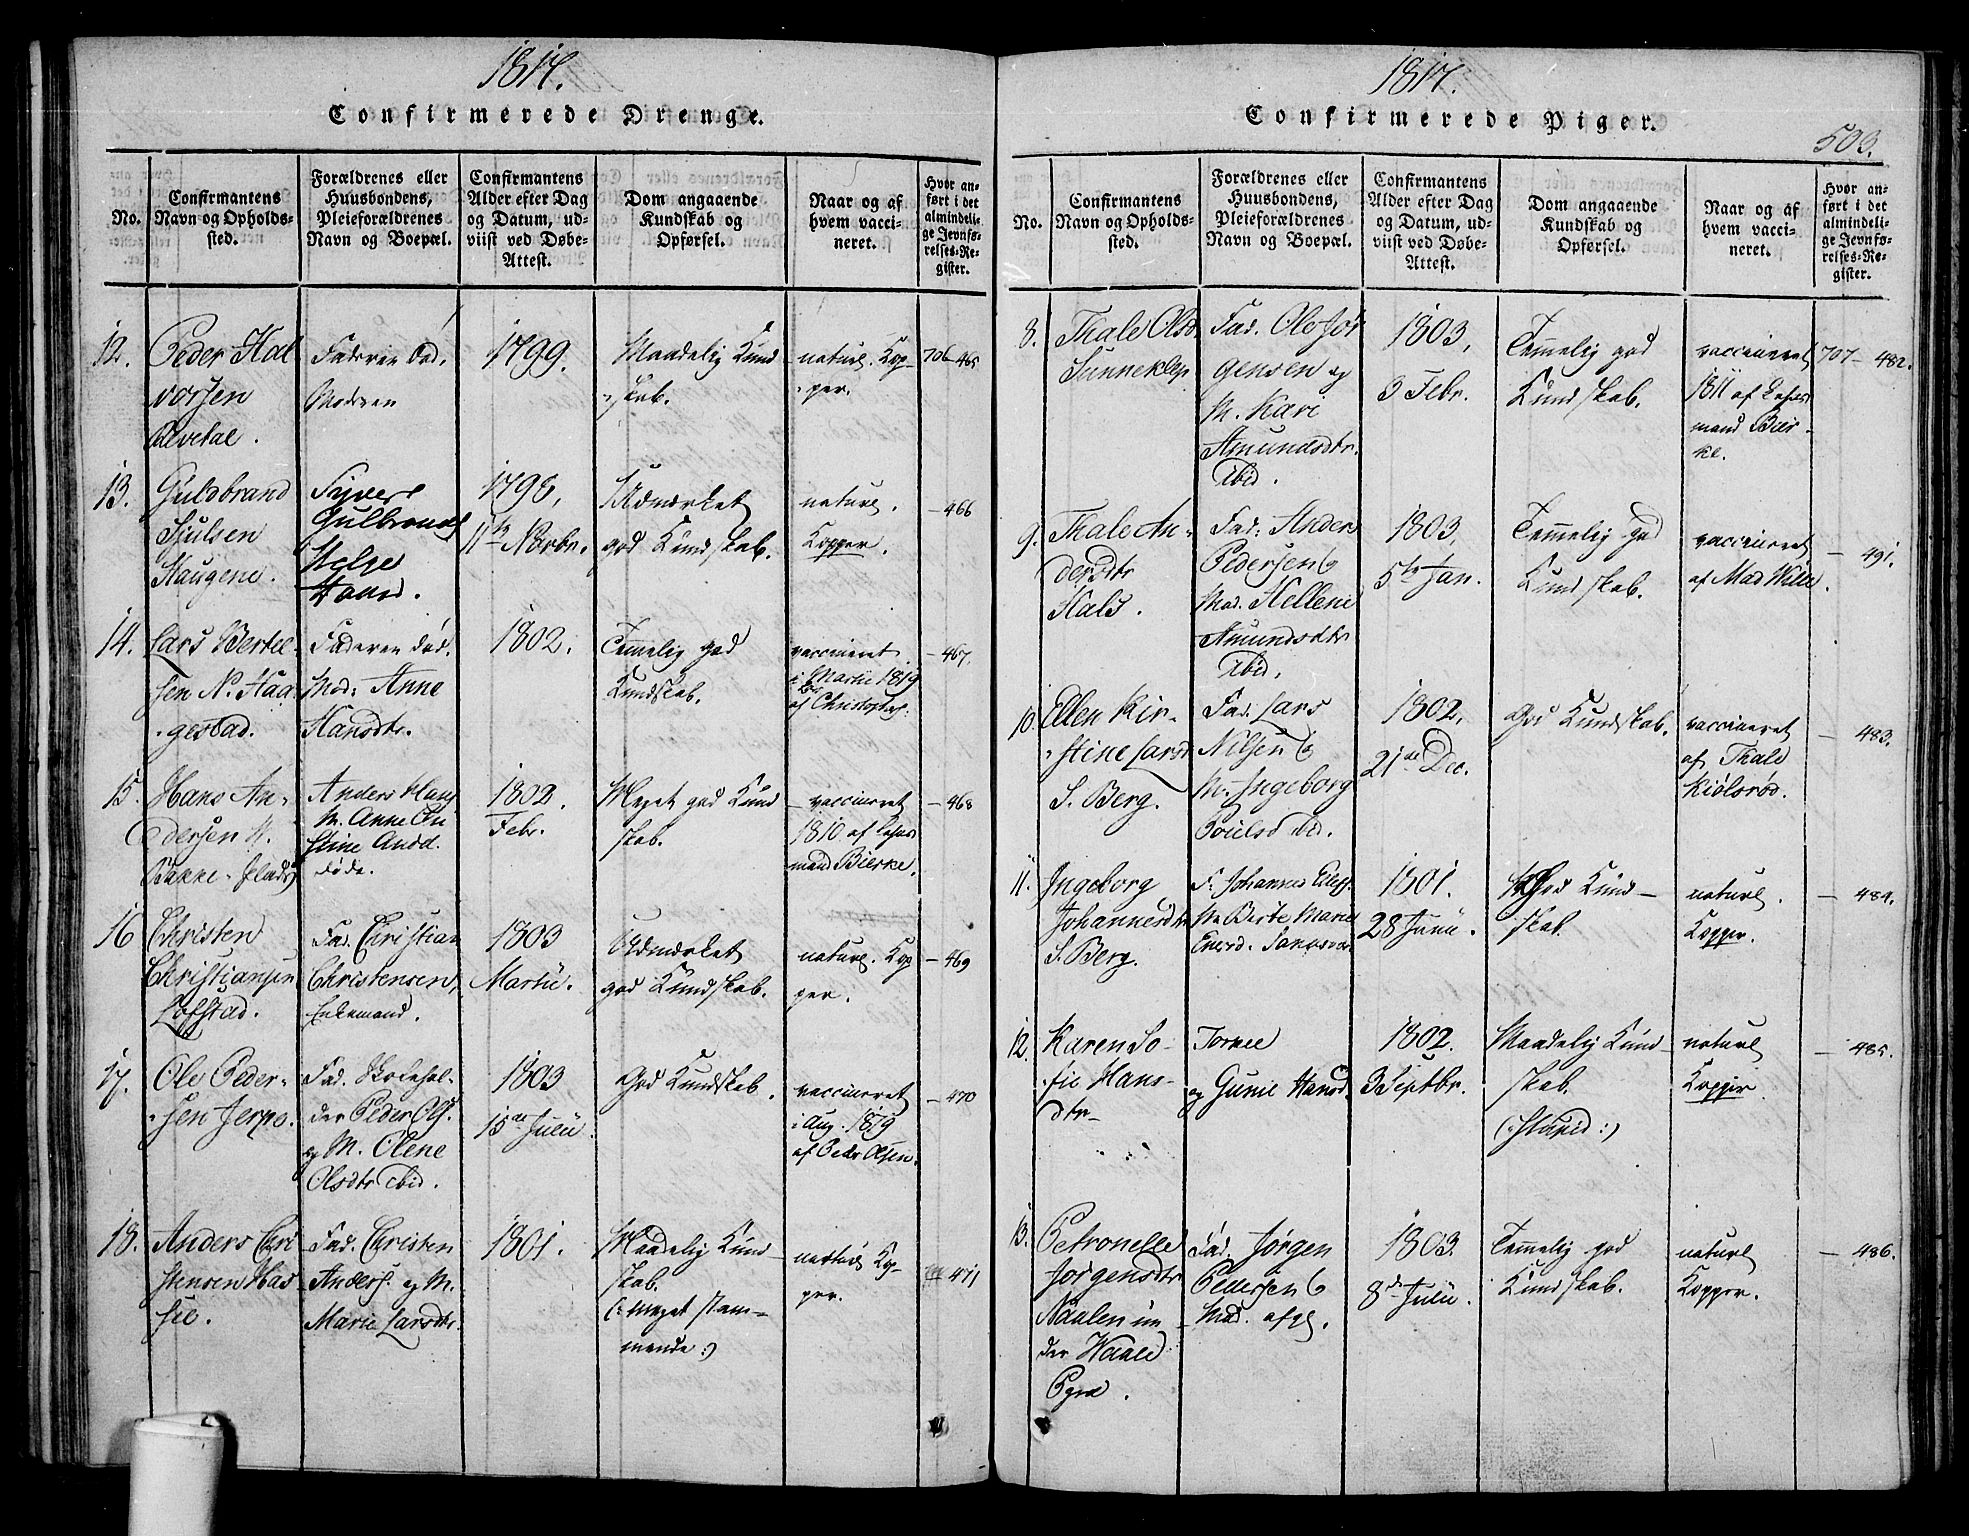 1817.
Confirmerede Drenge.
No.
Confirmantens
Navn og Opholds-
sted.
Forældrenes eller
Huusbondens,
Pleieforældrenes
Navn og Boepæl.
Confirmantens
Alder efter Dag
og Datum, ud-
viist ved Døbe-
Attest.
Dom angaaende
Kundskab og
Opførsel.
Naar og af
hvem vacci-
neret.
Hvor an-
ført i det
almindeli-
ge Jevnfø-
relses-Re-
gister.
12.
Peder Hal
vorsen
Faderen død,
Moderen
1799.
Maadelig Kund
skab.
naturl. Kop-
per.
706-465
13.
Guldbrand
Sjulsen
Haugene.
Gulbrands
Helge
11te Novbr.
Udmærket
god Kundskab.
naturl.
Kopper.
-466
14.
Lars Bertel-
sen N. Haa-
gestad.
Faderen død.
Mod: Anne
Hansdtr.
1802.
Temelig god
Kundskab.
vaccineret
i Martii 1819
af Christophers:
-467.
15.
Hans An-
dersen N.
Bakke-Plads
Anders Hans
M. Anne Chri
stine Andd.
døde.
1802.
Febr.
Meget god Kund
skab.
vaccineret
1810 af Lehns
mand Bierke.
-468
16
Christen
Christiansen
Lofstad.
Fad. Christian
Christensen,
Enkemand.
1803
Martii.
Udmærket
god Kundskab.
naturl. Kop
per.
-469
17.
Ole Peder-
sen Jerpe.
Fad. Skolehol-
der Peder Ols.
og M. Olene
Olsdtr ibid.
1803
15de Julii
God Kundskab.
vaccineret
i Aug. 1819
af Peder Olsen.
-470
18.
Anders Chri
stensen Has
sil.
Fad. Christen
Anders. og M.
Marie Larsdtr.
1801.
Maadelig Kund
skab.
(: meget stam-
mende :)
Kop-
per.
471
1817.
Confirmerede Piger.
503.
No.
Confirmantens
Navn og Opholds-
sted.
Forældrenes eller
Huusbondens,
Pleieforældrenes
Navn og Boepæl.
Confirmantens
Alder efter Dag
og Datum, ud-
viist ved Døbe-
Attest.
Dom angaaende
Kundskab og
Opførsel.
Naar og af
hvem vacci-
neret.
Hvor an-
ført i det
almindeli-
ge Jevnfø-
relses-Re-
gister.
8.
Thale Olsd.
Sunneklep
Fad. Ole Jør
gensen og
M. Kari
Amundsdtr.
ibid.
1803,
3 Febr.
Temelig god
Kundskab.
vaccineret
1811 af Lehns
mand Bier-
ke.
707-482.
9.
Thale An-
dersdtr
Hals.
Fad: Anders
Pedersen &
Mod. Hellene
Amundsdtr
ibid.
1803,
5te Jan.
Temelig god
Kundskab.
vaccineret
af Mad Wille.
- 491.
10.
Ellen Kir-
stine Larsd
S. Berg.
Fad. Lars
Nilsen &
M. Ingeborg
Poulsd ibid.
1802.
21de Dec.
God Kundskab.
vaccineret
af Thale
Kiølsrød.
- 483.
11.
Ingeborg
Johannesdtr
S. Berg.
F. Johannes
M. Birte Marie
1801.
28 Junii.
God Kund-
skab.
naturl.
Kopper.
- 484.
12.
Karen So-
fie Hans-
dtr-
og Gunil Hansd
1802.
3 Septbr.
Maadelig Kund-
skab.
(: stupid :)
naturl
Kopper.
- 485.
13.
Petronelle
Jørgensdtr
Naalen un
der
Fad. Jørgen
Pedersen &
Mod. afg.
1803.
8de Julii.
Temelig god
Kundskab.
naturl
Kopper.
- 486.